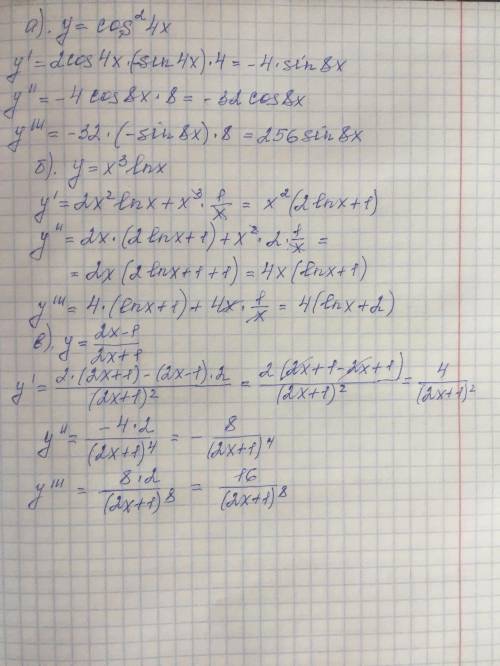 а). y = cos² 4x
y' = 2cos4x·(-sin4x)·4 = -4·sin8x
y'' = -4cos8x·8 = -32cos8x
y''' = -32·(-sin8x)·8 = 256sin8x
б). y = x³lnx
y' = 2x²lnx + x³·1/x = x²(2lnx+1)
y'' = 2x·(2lnx+1) + x²·2·1/x =
= 2x(2lnx+1+1) = 4x(lnx+1)
y''' = 4·(lnx+1) + 4x·1/x = 4(lnx+2)
в). y = (2x-1)/(2x+1)
y' = (2·(2x+1)-(2x-1)·2)/(2x+1)² = 2(2x+1-2x+1)/(2x+1)² = 4/(2x+1)²
y'' = (-4·2)/(2x+1)⁴ = -8/(2x+1)⁴
y''' = (8·2)/(2x+1)⁸ = 16/(2x+1)⁸